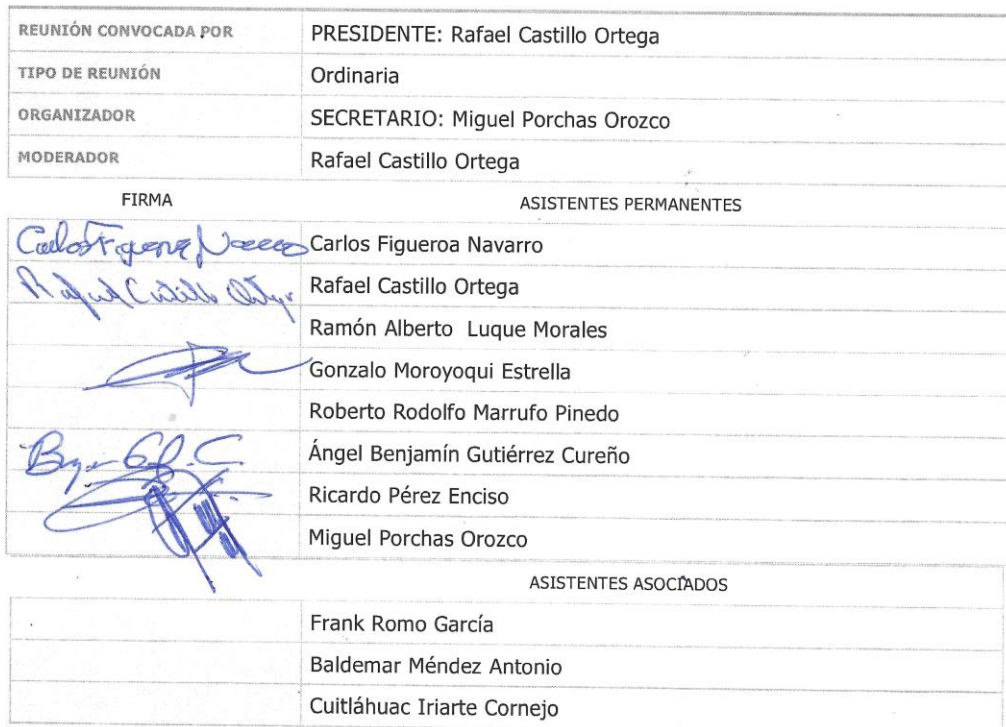 REUNIÓN CONVOCADA POR PRESIDENTE: Rafael Castillo Ortega
TIPO DE REUNIÓN Ordinaria
ORGANIZADOR SECRETARIO: Miguel Porchas Orozco
MODERADOR Rafael Castillo Ortega
FIRMA ASISTENTES PERMANENTES
Carlos Figueroa Navarro Carlos Figueroa Navarro
Rafael Castillo Ortega Rafael Castillo Ortega
Ramón Alberto Luque Morales
Gonzalo Moroyoqui Estrella
Roberto Rodolfo Marrufo Pinedo
Ángel Benjamín Gutiérrez Cureño
Ricardo Pérez Enciso
Miguel Porchas Orozco
ASISTENTES ASOCIADOS
Frank Romo García
Baldemar Méndez Antonio
Cuitláhuac Iriarte Cornejo